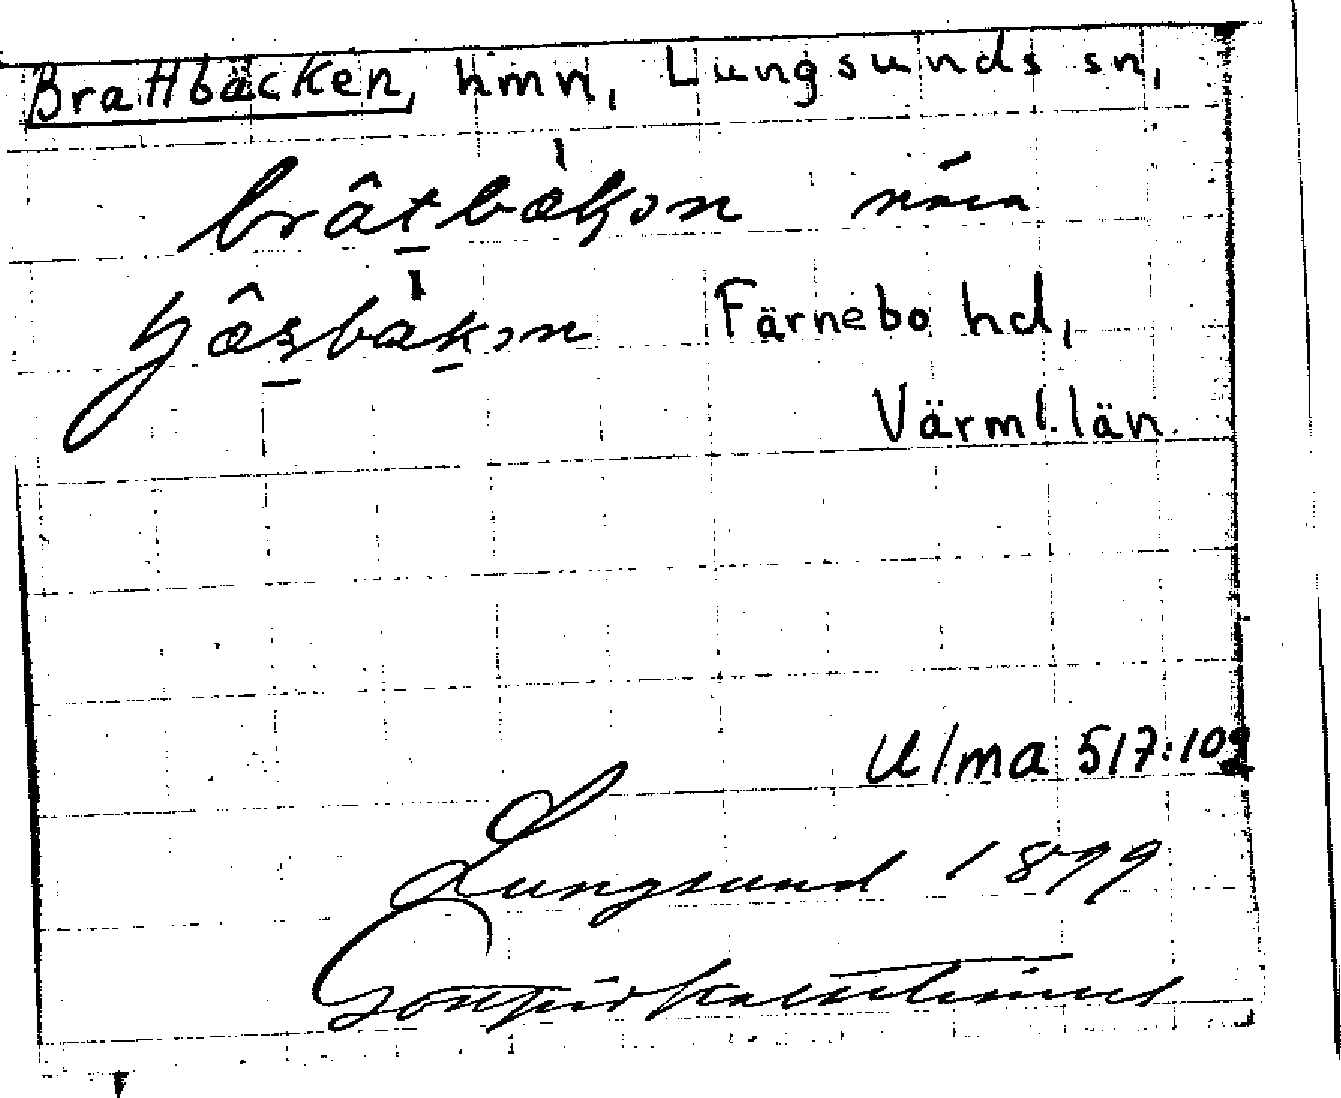 Brattbäcken, hmn, Lungsunds sn,
brâtbækɔn nära
Färnebo hd,
Värml. län.
Ulma 517:109
Lungsund 1899
Gottfrid Kallstenius